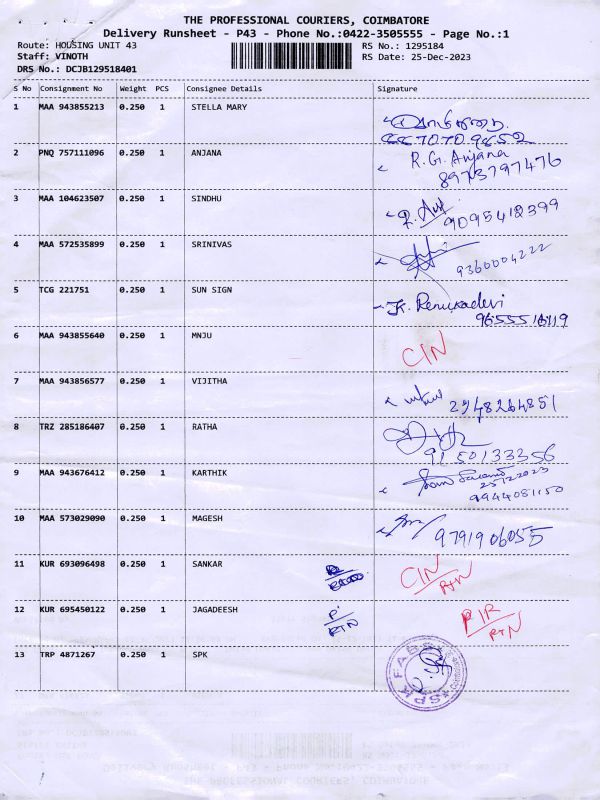 THE PROFESSIONAL COURIERS, COIMBATORE
Delivery Runsheet - P43 - Phone No.:0422-3505555 - Page No.:1
Route: HOUSING UNIT 43 RS No.: 1295184
Staff: VINOTH RS Date: 25-Dec-2023
DRS No.: DCJB129518401
S No Consignment No Weight PCS Consignee Details Signature
1 MAA 943855213 0.250 1 STELLA MARY
8870709852
2 PNQ 757111096 0.250 1 ANJANA R.G. Anjana
8973797476
3 MAA 104623507 0.250 1 SINDHU 9095412399
4 MAA 572535899 0.250 1 SRINIVAS 9360004222
5 TCG 221751 0.250 1 SUN SIGN K. Renukadevi
9655516119
6 MAA 943855640 0.250 1 MNJU CIN
7 MAA 943856577 0.250 1 VIJITHA
8 TRZ 285186407 0.250 1 RATHA
9150133356
9 MAA 943676412 0.250 1 KARTHIK
25/12/2023
9944081150
10 MAA 573029090 0.250 1 MAGESH 9791906055
11 KUR 693096498 0.250 1 SANKAR CIN
RTN
12 KUR 695450122 0.250 1 JAGADEESH P/RTN P/R
RTN
13 TRP 4871267 0.250 1 SPK
SPK FABS